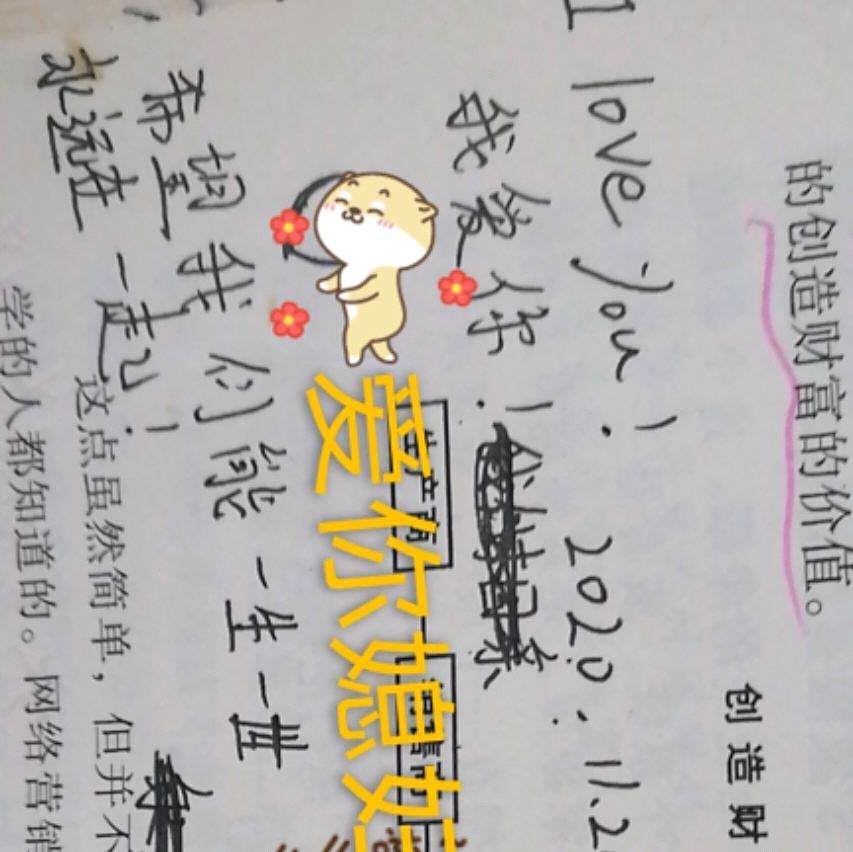 的创造财富的价值。
创造财
I love you!
2020.11.2
我爱你!
爱你媳妇
希望我们能一生一世
永远在一起!
这点虽然简单，但并不
学的人都知道的。网络营销